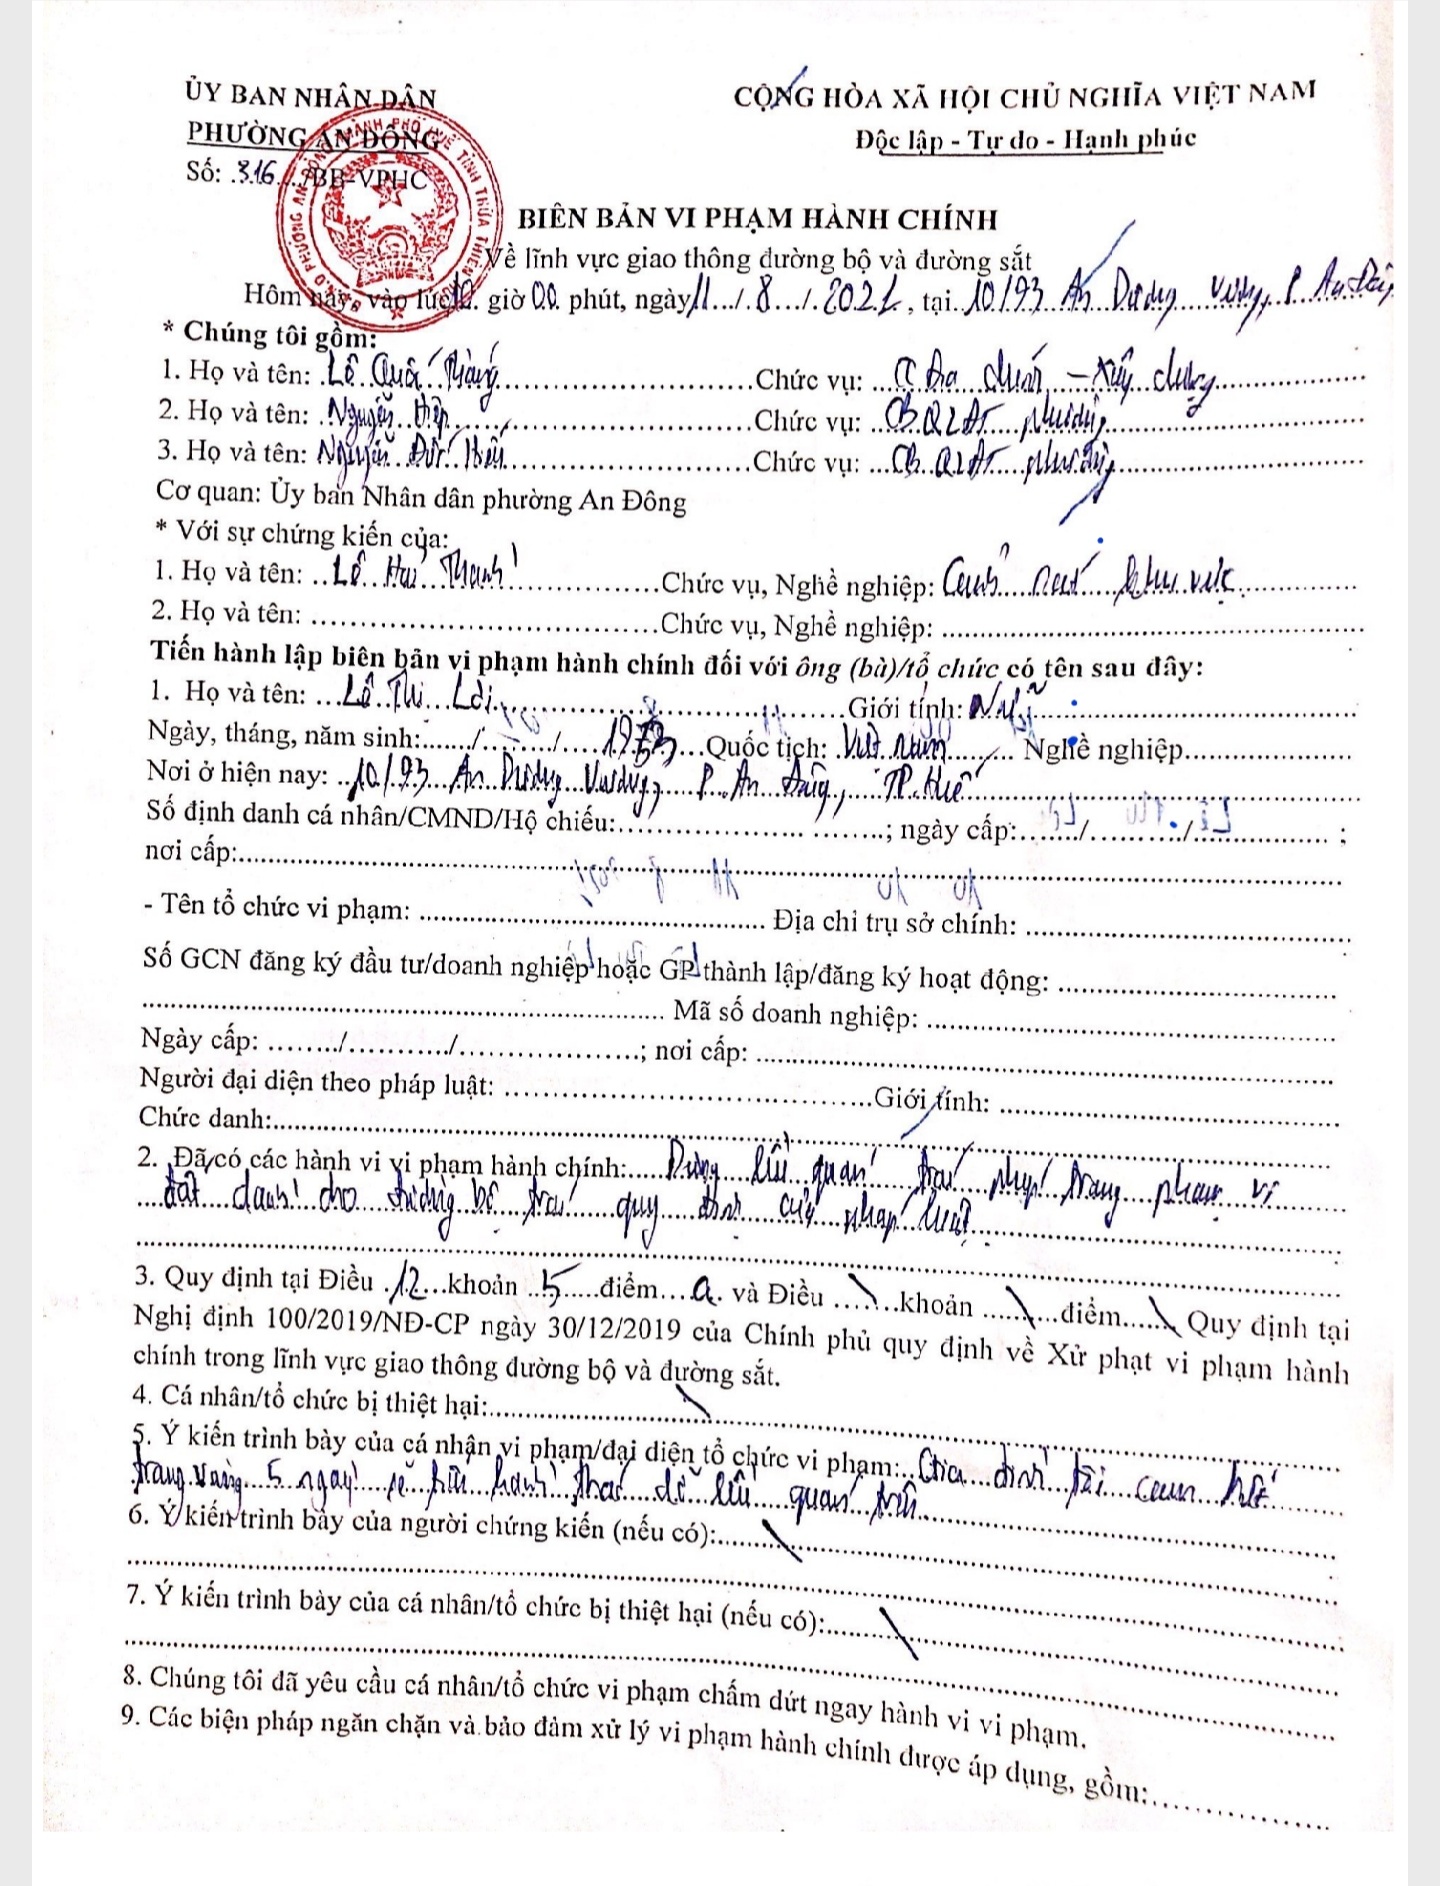 ỦY BAN NHÂN DÂN
PHƯỜNG AN ĐÔNG
Số: 316 /BB-VPHC
CỘNG HÒA XÃ HỘI CHỦ NGHĨA VIỆT NAM
Độc lập - Tự do - Hạnh phúc
BIÊN BẢN VI PHẠM HÀNH CHÍNH
Về lĩnh vực giao thông đường bộ và đường sắt
Hôm nay, vào lúc giờ 00 phút, ngày 11 / 8 / 2021, tại 10/93 An Dương Vương, P An Đông
* Chúng tôi gồm:
1. Họ và tên: Lê Quốc Thắng Chức vụ: CC Địa chính - Xây dựng
2. Họ và tên: Nguyễn Hiệp Chức vụ: CB QLĐT phường
3. Họ và tên: Nguyễn Đức Hiếu Chức vụ: CB QLĐT phường
Cơ quan: Ủy ban Nhân dân phường An Đông
* Với sự chứng kiến của:
1. Họ và tên: Lê Hải Thanh Chức vụ, Nghề nghiệp: Cảnh sát khu vực
2. Họ và tên: Chức vụ, Nghề nghiệp:
Tiến hành lập biên bản vi phạm hành chính đối với ông (bà)/tổ chức có tên sau đây:
1. Họ và tên: Lê Thị Lài Giới tính: Nữ
Ngày, tháng, năm sinh: / / Quốc tịch: Việt Nam Nghề nghiệp
Nơi ở hiện nay: 10/93 An Dương Vương, P. An Đông, TP Huế
Số định danh cá nhân/CMND/Hộ chiếu: ; ngày cấp: / / ;
nơi cấp:
- Tên tổ chức vi phạm: Địa chỉ trụ sở chính:
Số GCN đăng ký đầu tư/doanh nghiệp hoặc GP thành lập/đăng ký hoạt động:
Mã số doanh nghiệp:
Ngày cấp: / / ; nơi cấp:
Người đại diện theo pháp luật: Giới tính:
Chức danh:
2. Đã có các hành vi vi phạm hành chính: Dựng lều quán trái phép trong phạm vi
đất dành cho đường bộ trái quy định của pháp luật
3. Quy định tại Điều 12 khoản 5 điểm a và Điều \ khoản \ điểm \ Quy định tại
Nghị định 100/2019/NĐ-CP ngày 30/12/2019 của Chính phủ quy định về Xử phạt vi phạm hành
chính trong lĩnh vực giao thông đường bộ và đường sắt.
4. Cá nhân/tổ chức bị thiệt hại: \
5. Ý kiến trình bày của cá nhận vi phạm/đại diện tổ chức vi phạm: Gia đình tôi cam kết
trong vòng 5 ngày sẽ tiến hành tháo dỡ lều quán trên
6. Ý kiến trình bày của người chứng kiến (nếu có): \
7. Ý kiến trình bày của cá nhân/tổ chức bị thiệt hại (nếu có): \
8. Chúng tôi đã yêu cầu cá nhân/tổ chức vi phạm chấm dứt ngay hành vi vi phạm.
9. Các biện pháp ngăn chặn và bảo đảm xử lý vi phạm hành chính được áp dụng, gồm: